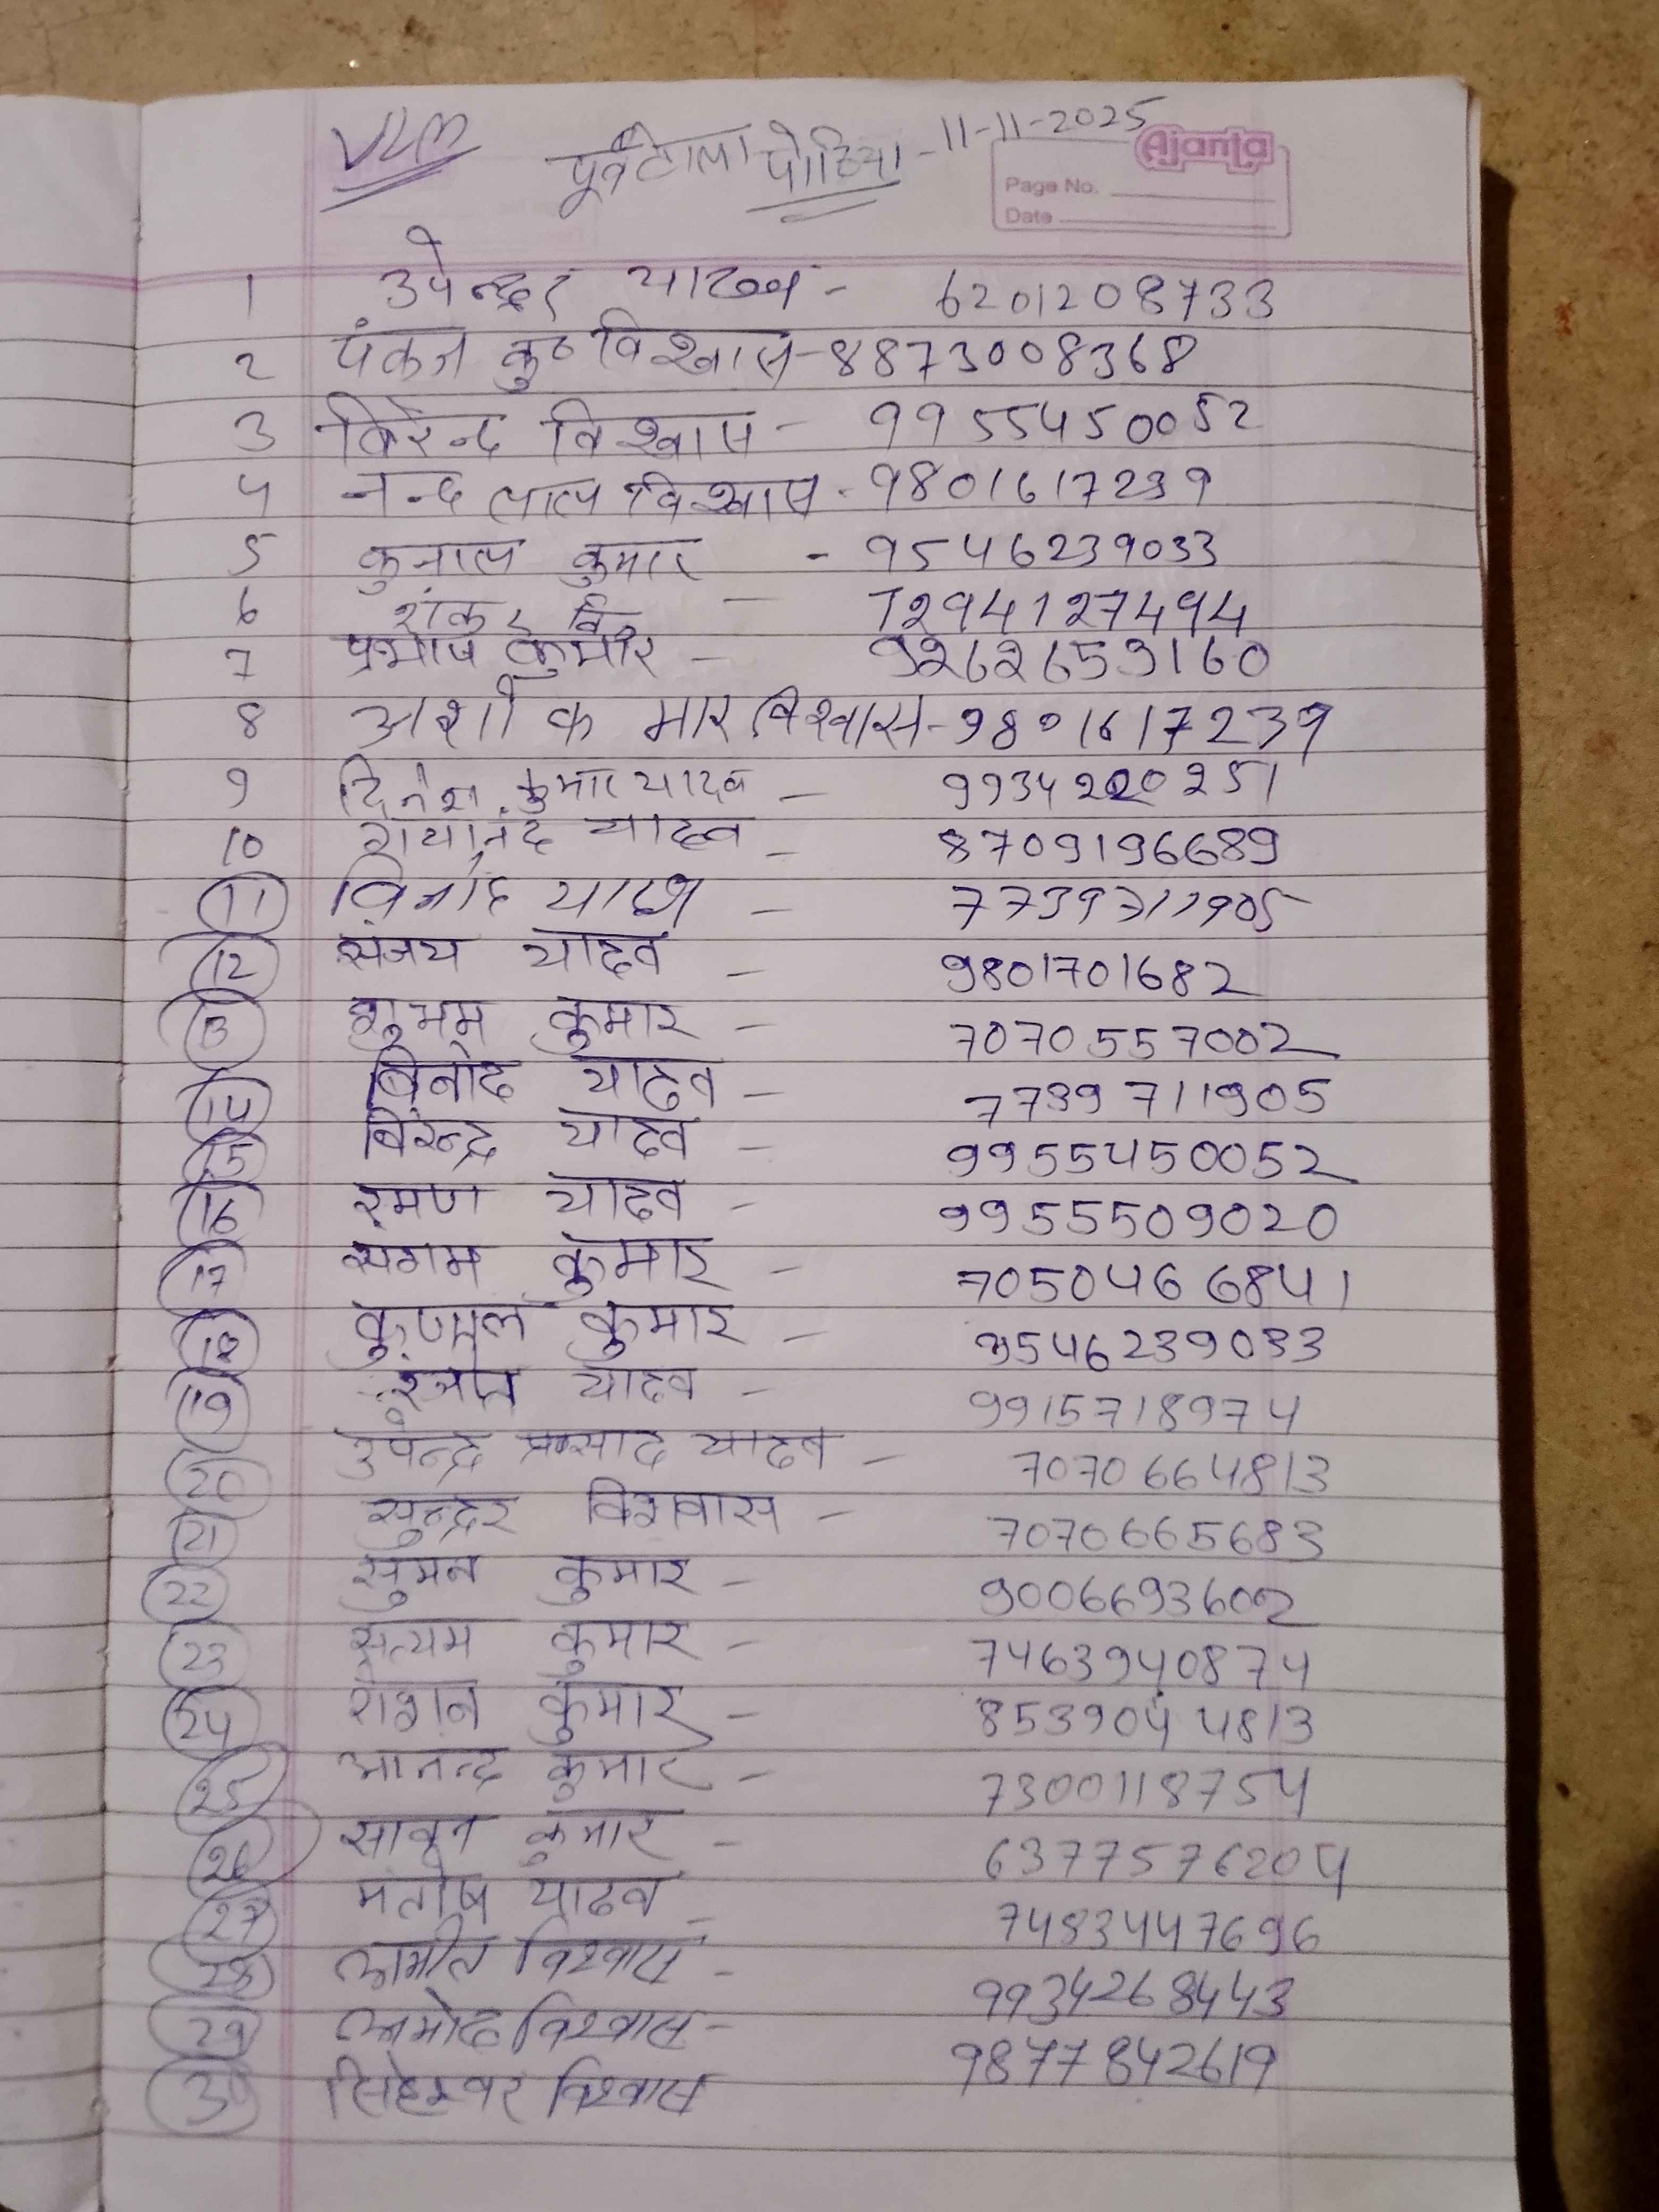 VLM पूर्वटोला पोठिया - 11-11-2025
Ajanta
Page No.
Date
1 उपेन्द्रर यादव - 6201208733
2 पंकज कु० विश्वास - 8873008368
3 बिरेन्द विश्वास - 9955450052
4 नन्द लाल विश्वास - 9801617239
5 कुनाल कुमार - 9546239033
6 शंकर वि - 7294127494
7 प्रभाष कुमार - 9262653160
8 अशोक मार विश्वास - 9801617239
9 दिनेश कुमार यादव - 9934220251
10 यादव - 8709196689
11 विनोद यादव - 7739711905
12 संजय यादव - 9801701682
13 शुभम कुमार - 7070557002
14 बिनोद यादव - 7739711905
15 बिरेन्द्र यादव - 9955450052
16 रमण यादव - 9955509020
17 कुमार - 7050466841
18 कुणाल कुमार - 9546239033
19 यादव - 9915718974
20 उपेन्द्र प्रसाद यादव - 7070664813
21 सुन्दर विशवास - 7070665683
22 सुमन कुमार - 9006693602
23 सत्यम कुमार - 7463940874
24 रोशन कुमार - 8539044813
25 आनन्द कुमार - 7300118754
26 कुमार - 6377576204
27 यादव - 7483447696
28 अमीत विश्वास - 9934268443
29 अमोद विश्वास - 9877842619
30 सिंहेश्वर विश्वास